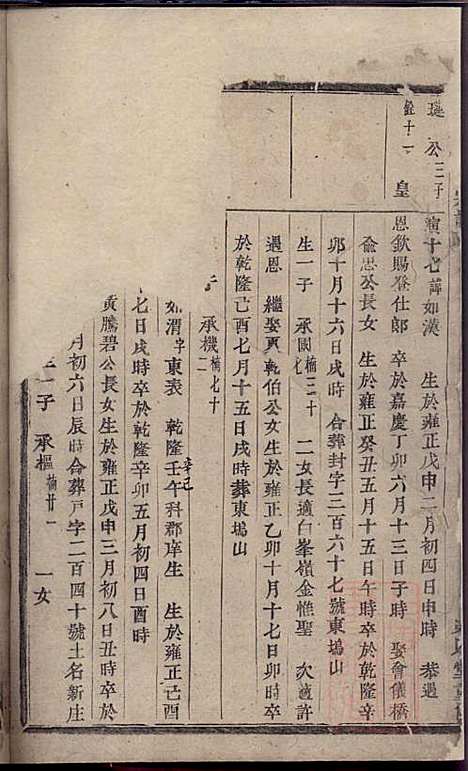 璇公三子
鑑十一 皇
演十七諱如漢 生於雍正戊申二月初四日申時 恭遇
恩欽賜登仕郎 卒於嘉慶丁卯六月十三日子時 娶會儀橋
俞忠公長女 生於雍正癸丑五月十五日午時卒於乾隆辛
卯十月十六日戌時 合葬封字三百六十七號東塢山
生一子 承國 楠三十七 二女長適白峯嶺金惟聖 次適許
遇恩 繼娶賈乾伯公女生於雍正乙卯十月十七日卯時
於乾隆己酉七月十五日戌時葬東塢山
子 承機 楠七十二
如渭字東表 乾隆壬午辛巳科郡庠生 生於雍正己酉
七日戌時卒於乾隆辛卯五月初四日酉時
黄騰碧公長女生於雍正戊申三月初八日丑時卒於
月初六日辰時合葬戸字二百四十號土名新庄
生一子 承樞 楠廿一 一女